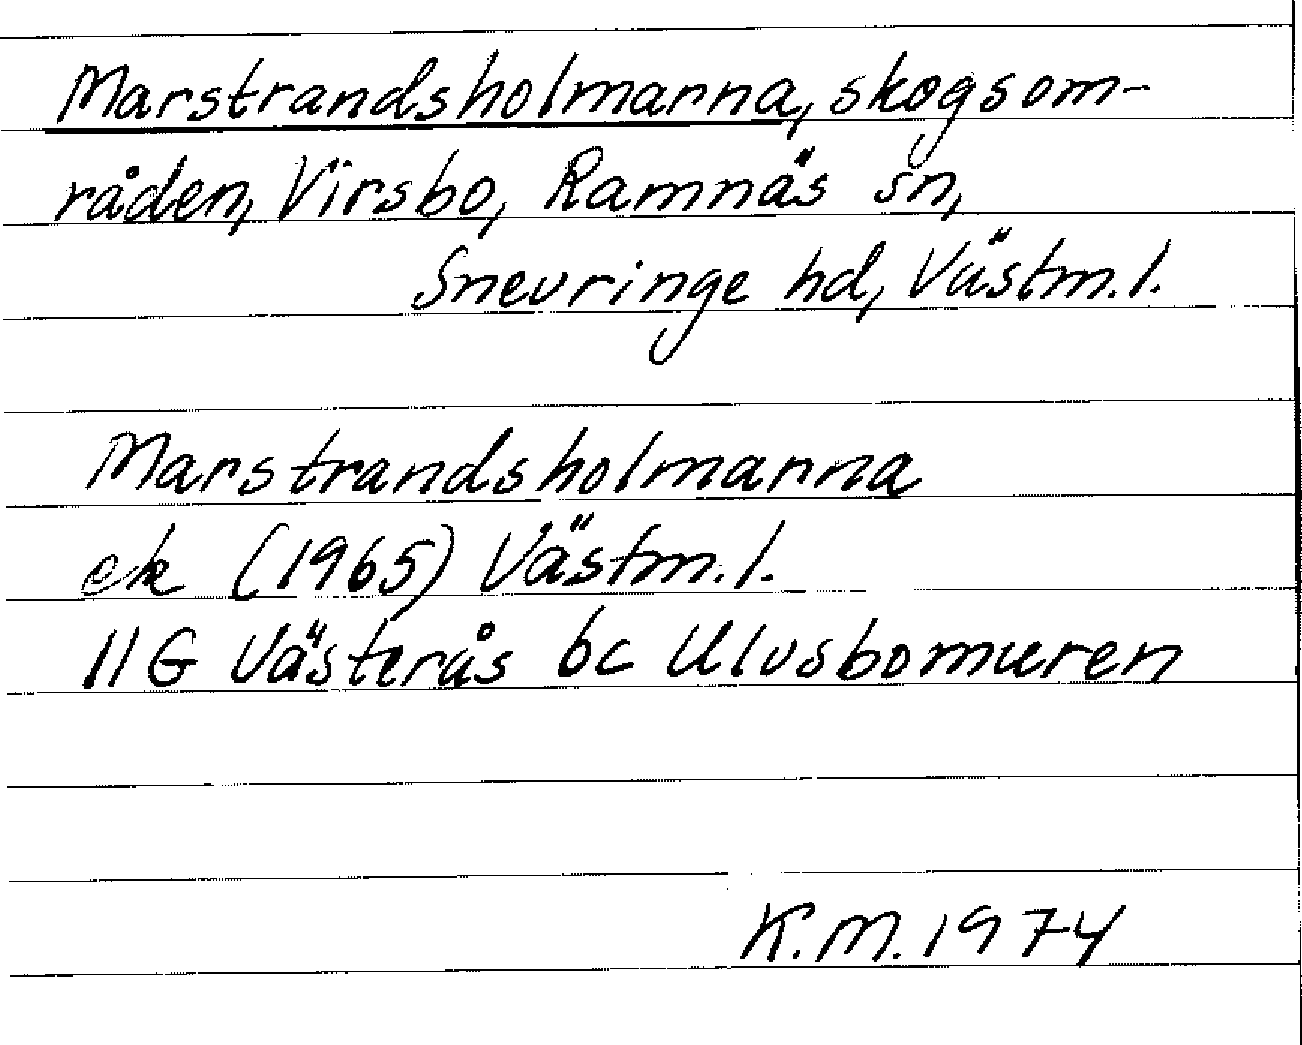 Marstrandsholmarna, skogsom-
råden, Virsbo, Ramnäs sn,
Snevringe hd, Västm. l.
Marstrandsholmarna
ek (1965) Västm. l.
11G Västerås bc Ulvsbomuren
K.M. 1974